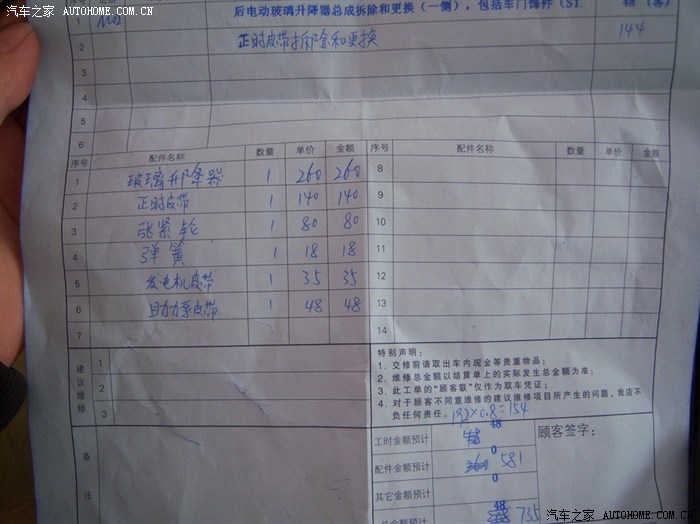 汽车之家 AUTOHOME.COM.CN
1 后电动玻璃升降器总成拆除和更换（一侧），包括车门饰件（S1 48（客）
2 正时皮带拆除和更换 144
3
4
5
6
序号 配件名称 数量 单价 金额 序号 配件名称 数量 单价 金额
1 玻璃升降器 1 260 260 8
2 正时皮带 1 140 140 9
3 张紧轮 1 80 80 10
4 弹簧 1 18 18 11
5 发电机皮带 1 35 35 12
6 助力泵皮带 1 48 48 13
7 14
建议维修 1 2 3
特别声明：
1. 交修前请取出车内现金等贵重物品；
2. 维修总金额以结算单上的实际发生总金额为准；
3. 此工单的“顾客联”仅作为取车凭证；
4. 对于顾客不同意维修的建议维修项目所产生的问题，我店不
负任何责任。 192×0.8=154
备注
工时金额预计 48 顾客签字：
配件金额预计 0 581
其它金额预计 0
总金额预计 48 735
汽车之家 AUTOHOME.COM.CN